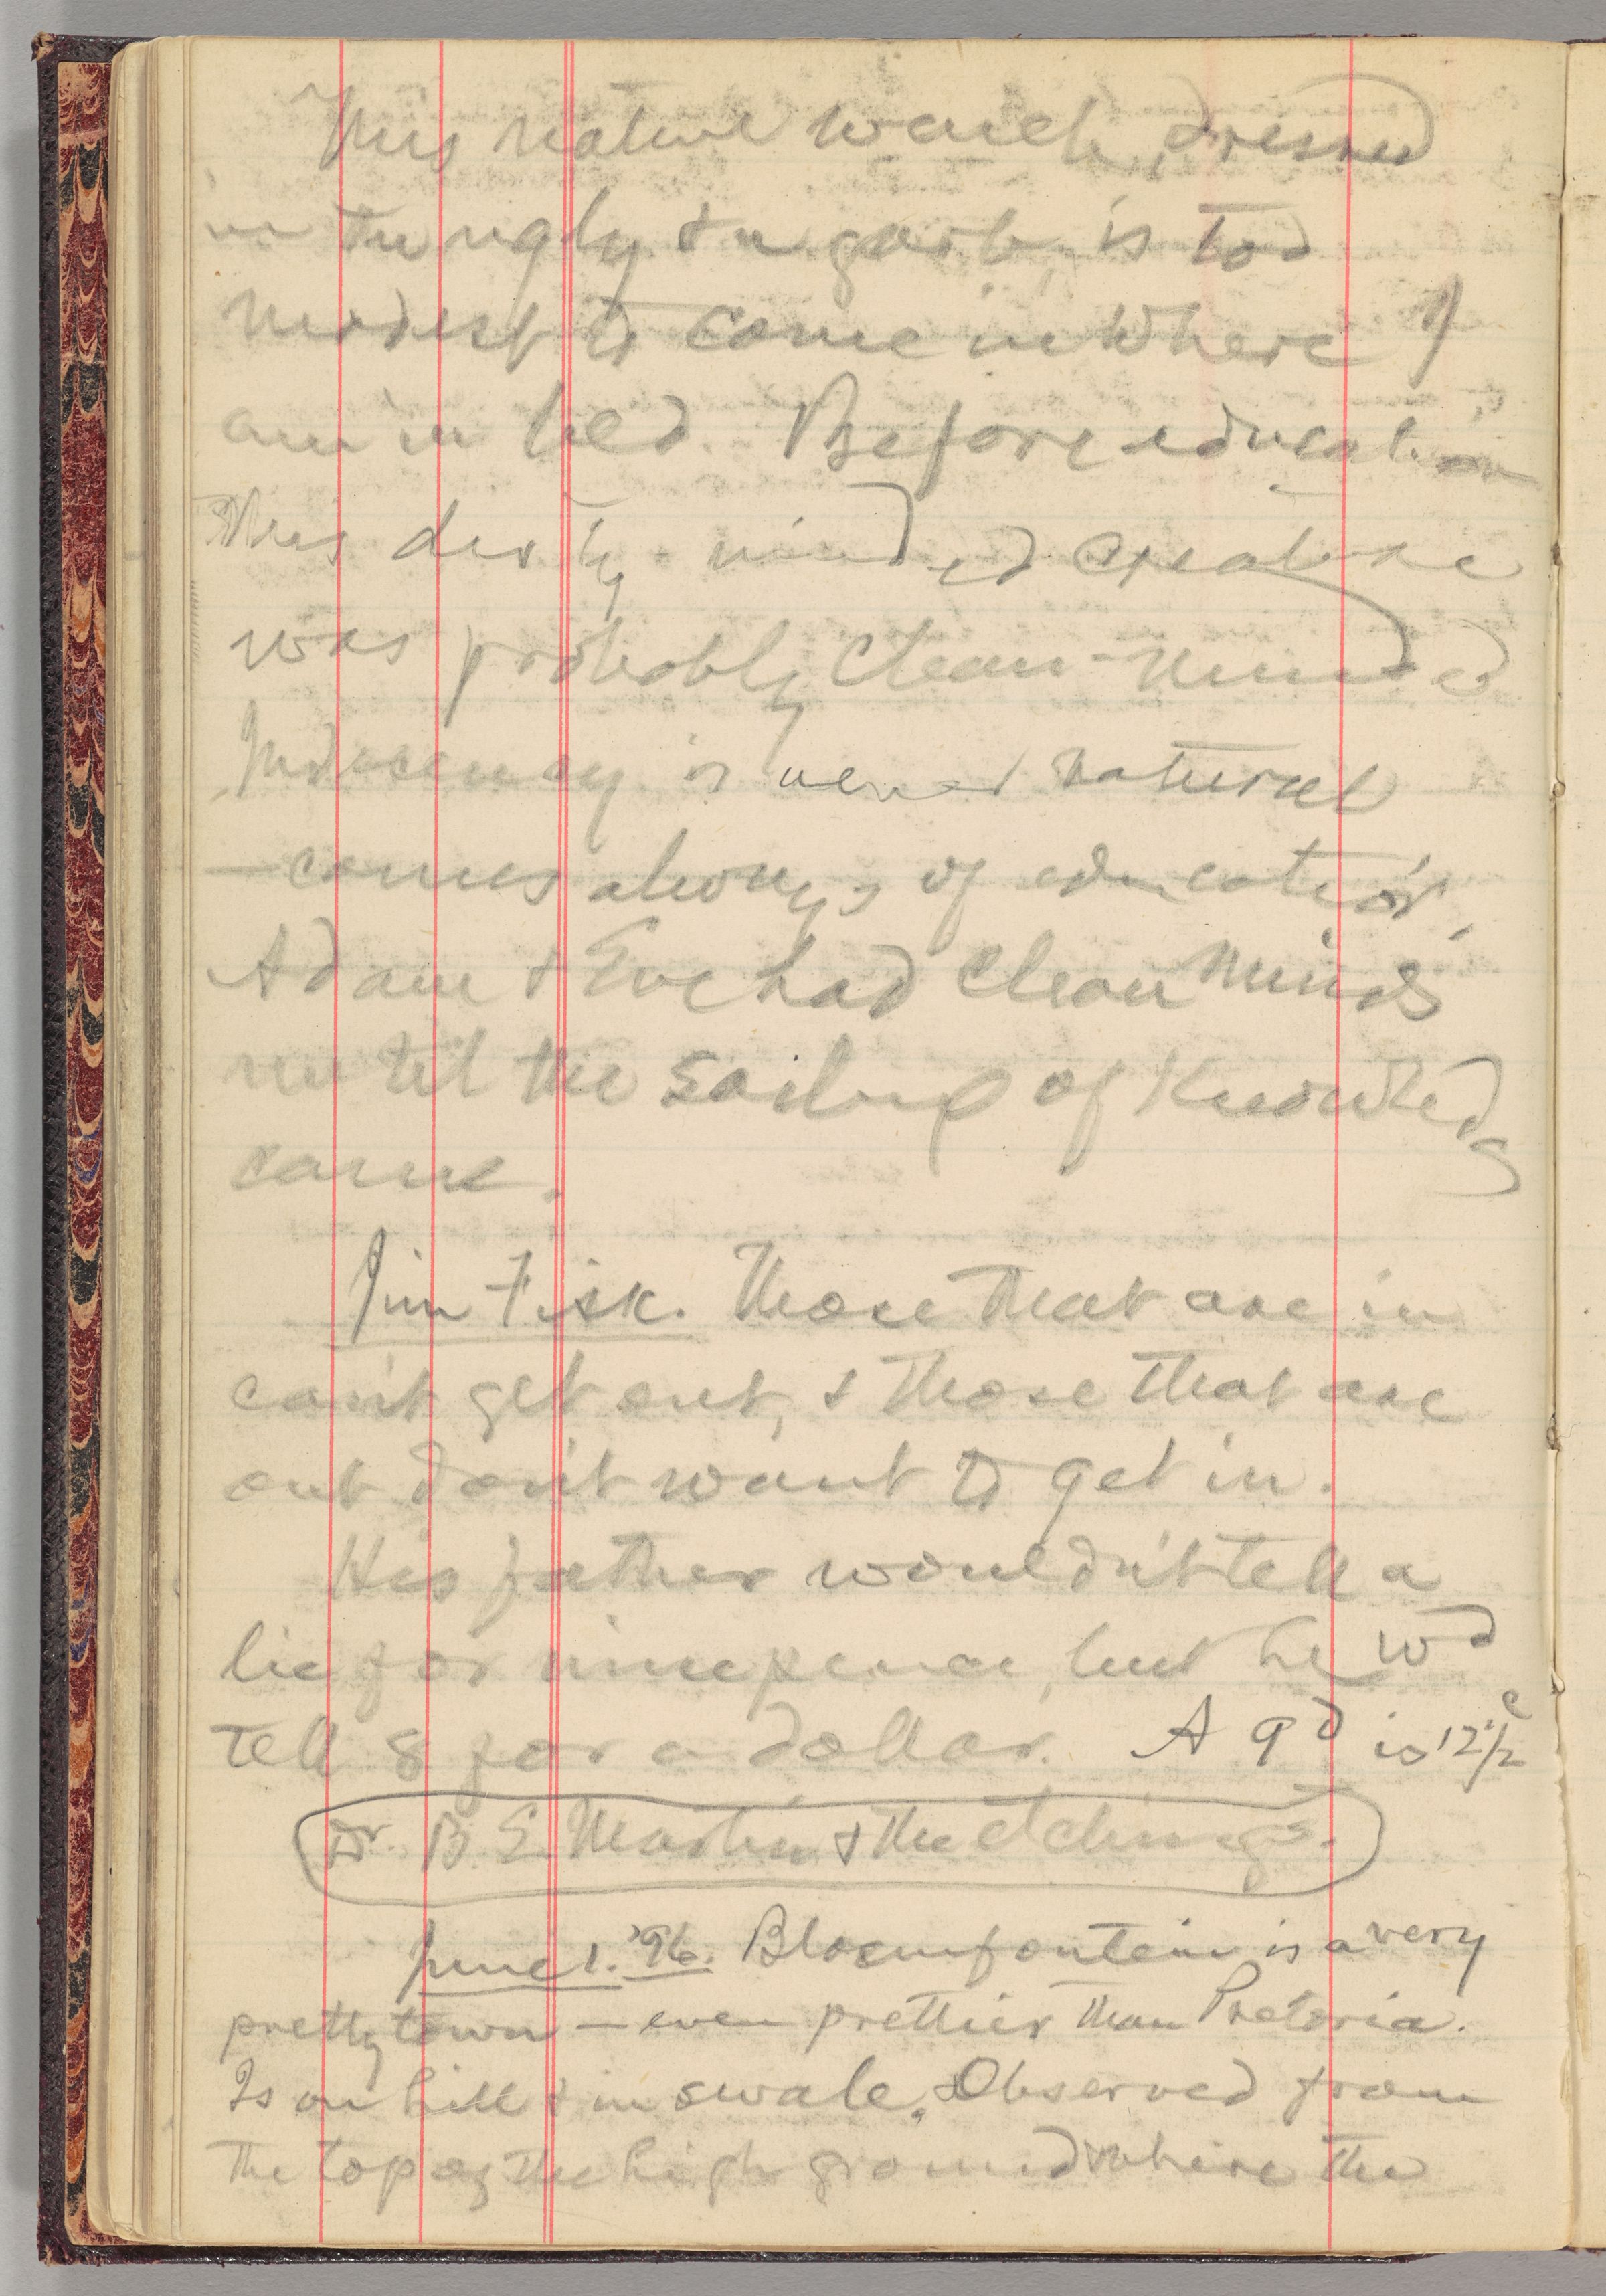 This native wench, dressed
in the ugly Xn garb, is too
modest to come in where I
am in bed. Before education
this dirty-minded creature
was probably clean-minded
Indecency is never natural
—comes always of education.
Adam & Eve had clean minds
until the of Knowledg
came.
Jim Fisk. Those that are in
can't get out, & those that are
out don't want to get in.
His father wouldn't tell a
lie for ninepence, but he wd
tell 8 for a dollar. A 9d is 12 1/2c
Dr. B. E. Martin & the etchings.
June 1. '96. Bloemfontein is a very
pretty town — even prettier than Pretoria.
Is on hill & in swale. Observed from
the top of the high ground where the